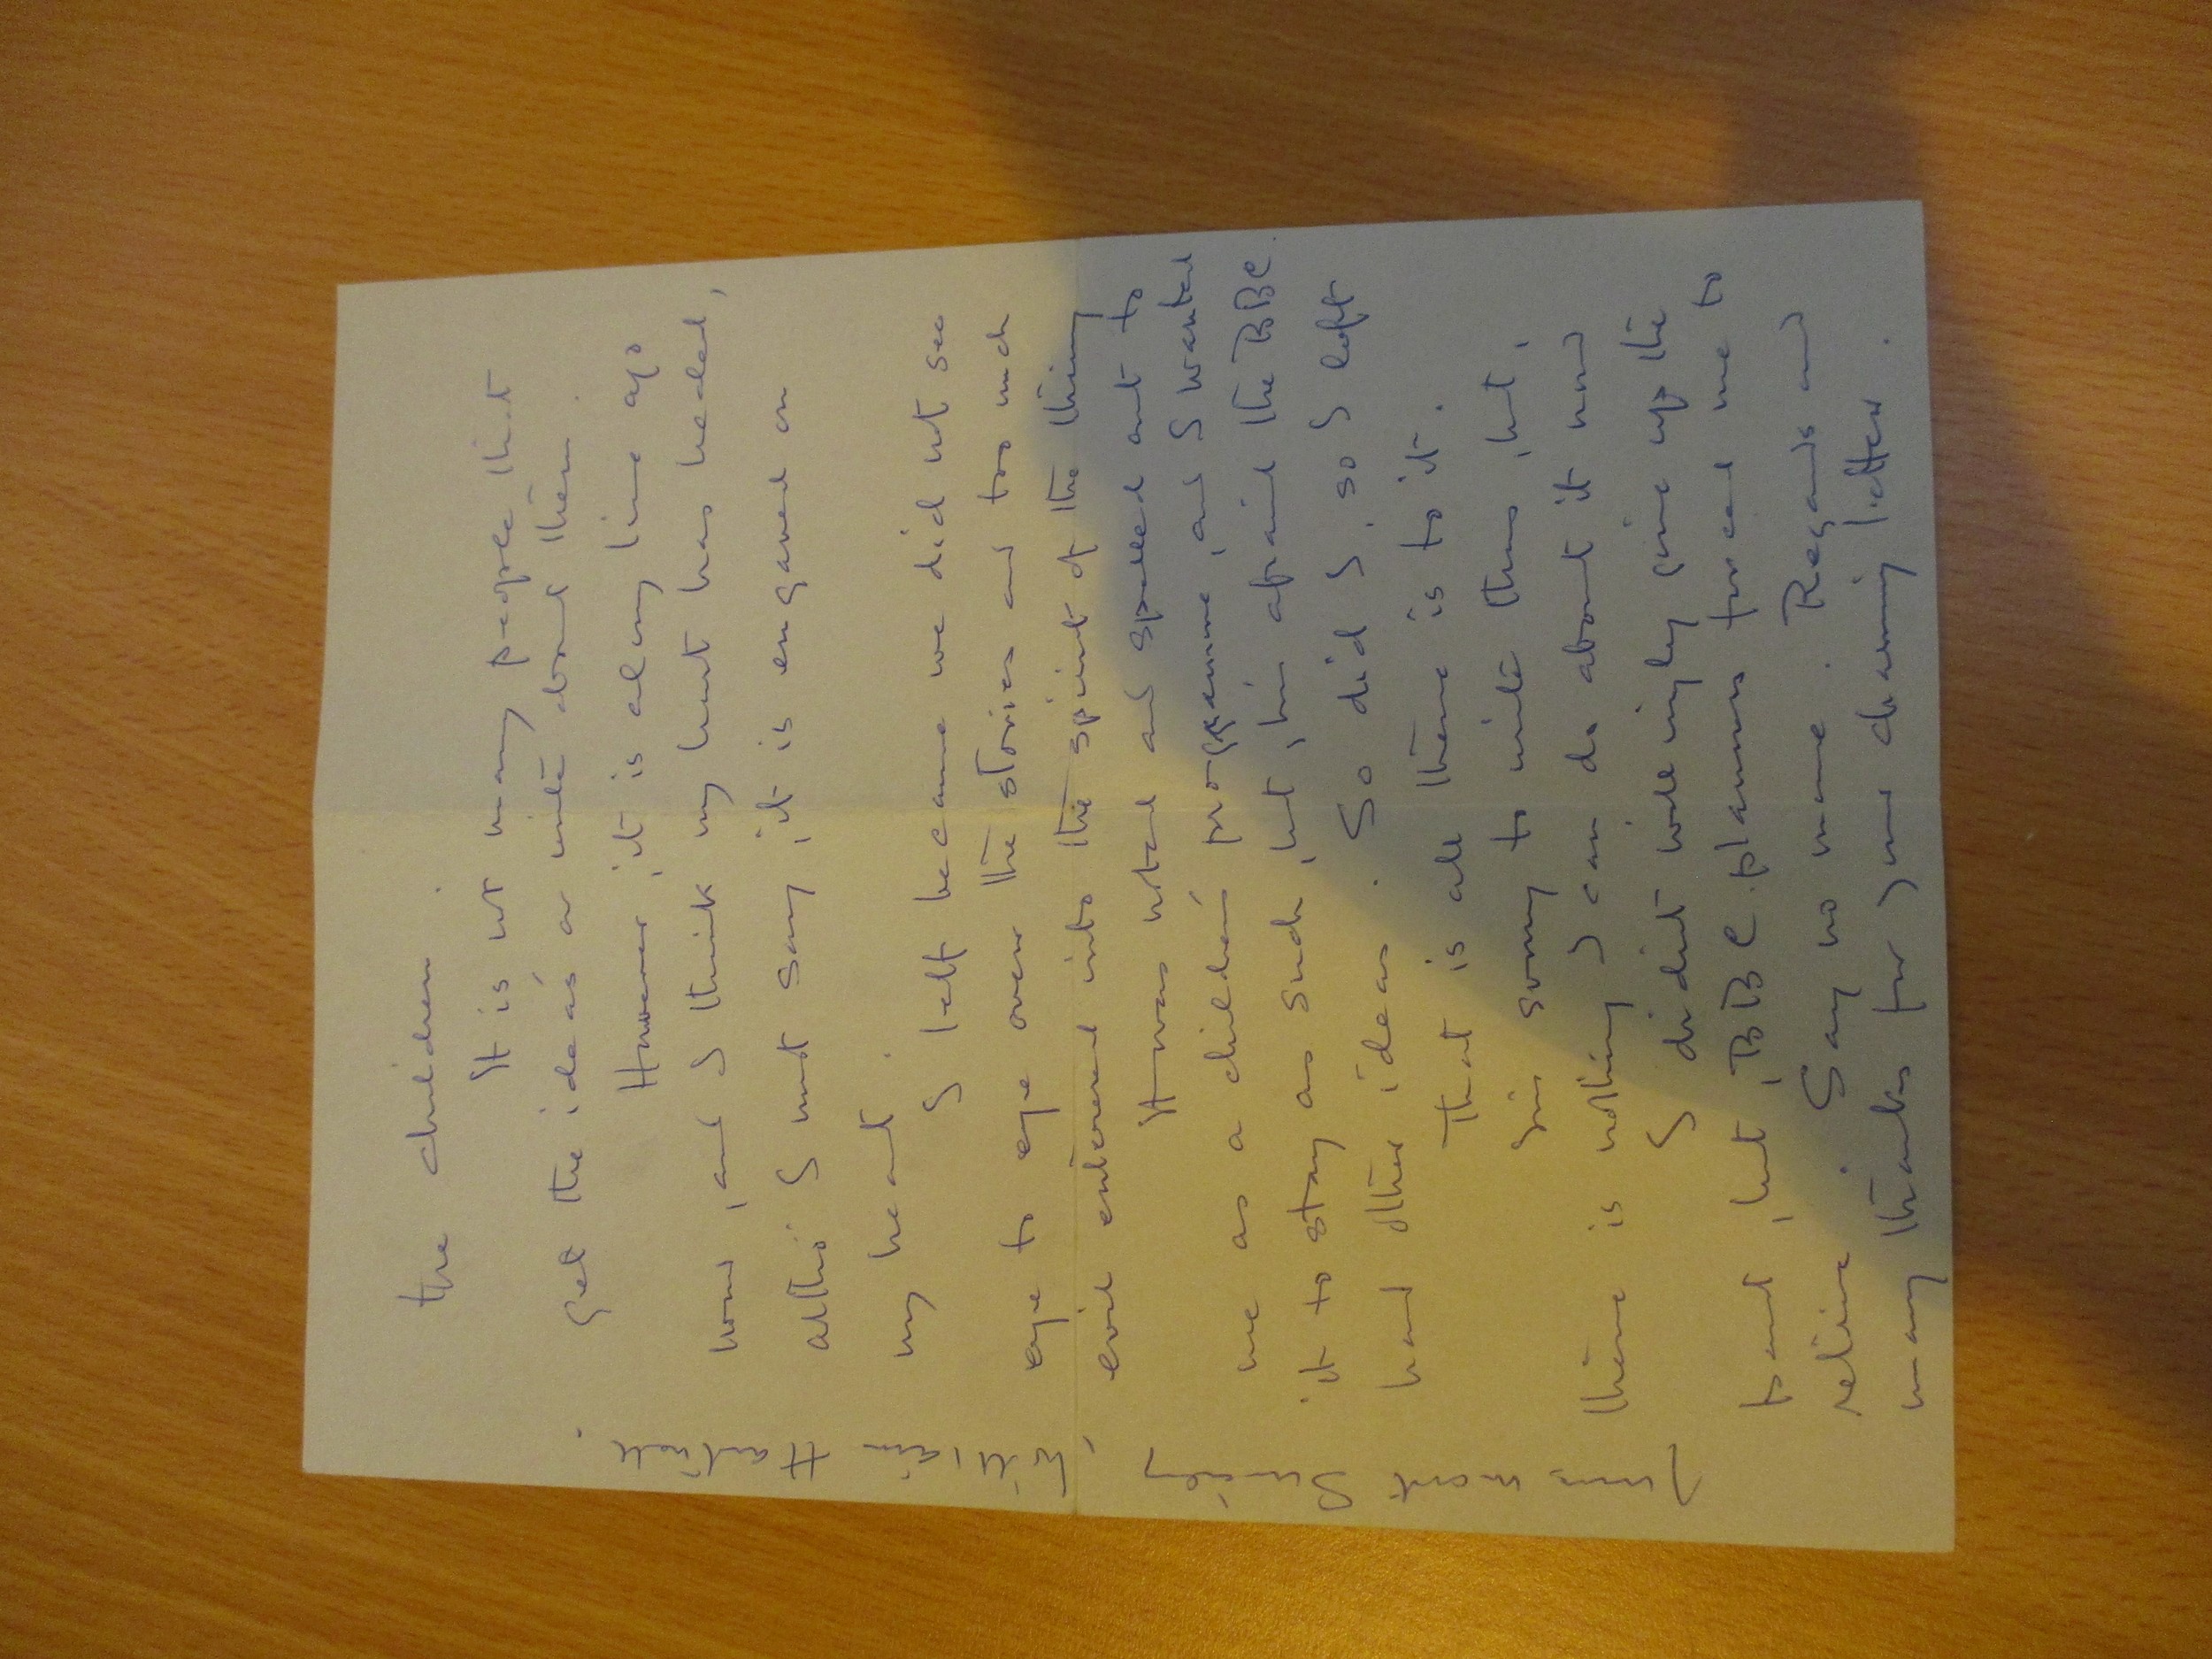 the children.
It is not many people that
get the idea's or write about them.
However, it is a long time ago
now, and I think my hurt has healed,
altho' I must say, it is engraved on
my heart.
I left because we did not see
eye to eye over the stories and too much
evil entered into the spirit of the thing
It was noted and spelled out to
me as a children's programme, and I wanted
it to stay as such, but, I'm afraid the BBC
had other ideas. So did I, so I left
That is all there is to it.
I'm sorry to write thus, but,
there is nothing I can do about it now
I didn't willingly give up the
part, but, BBC. planners forced me to
retire. Say no more. Regards and
many thanks for your charming letter.
Yours most Sincerely,
William Hartnell.